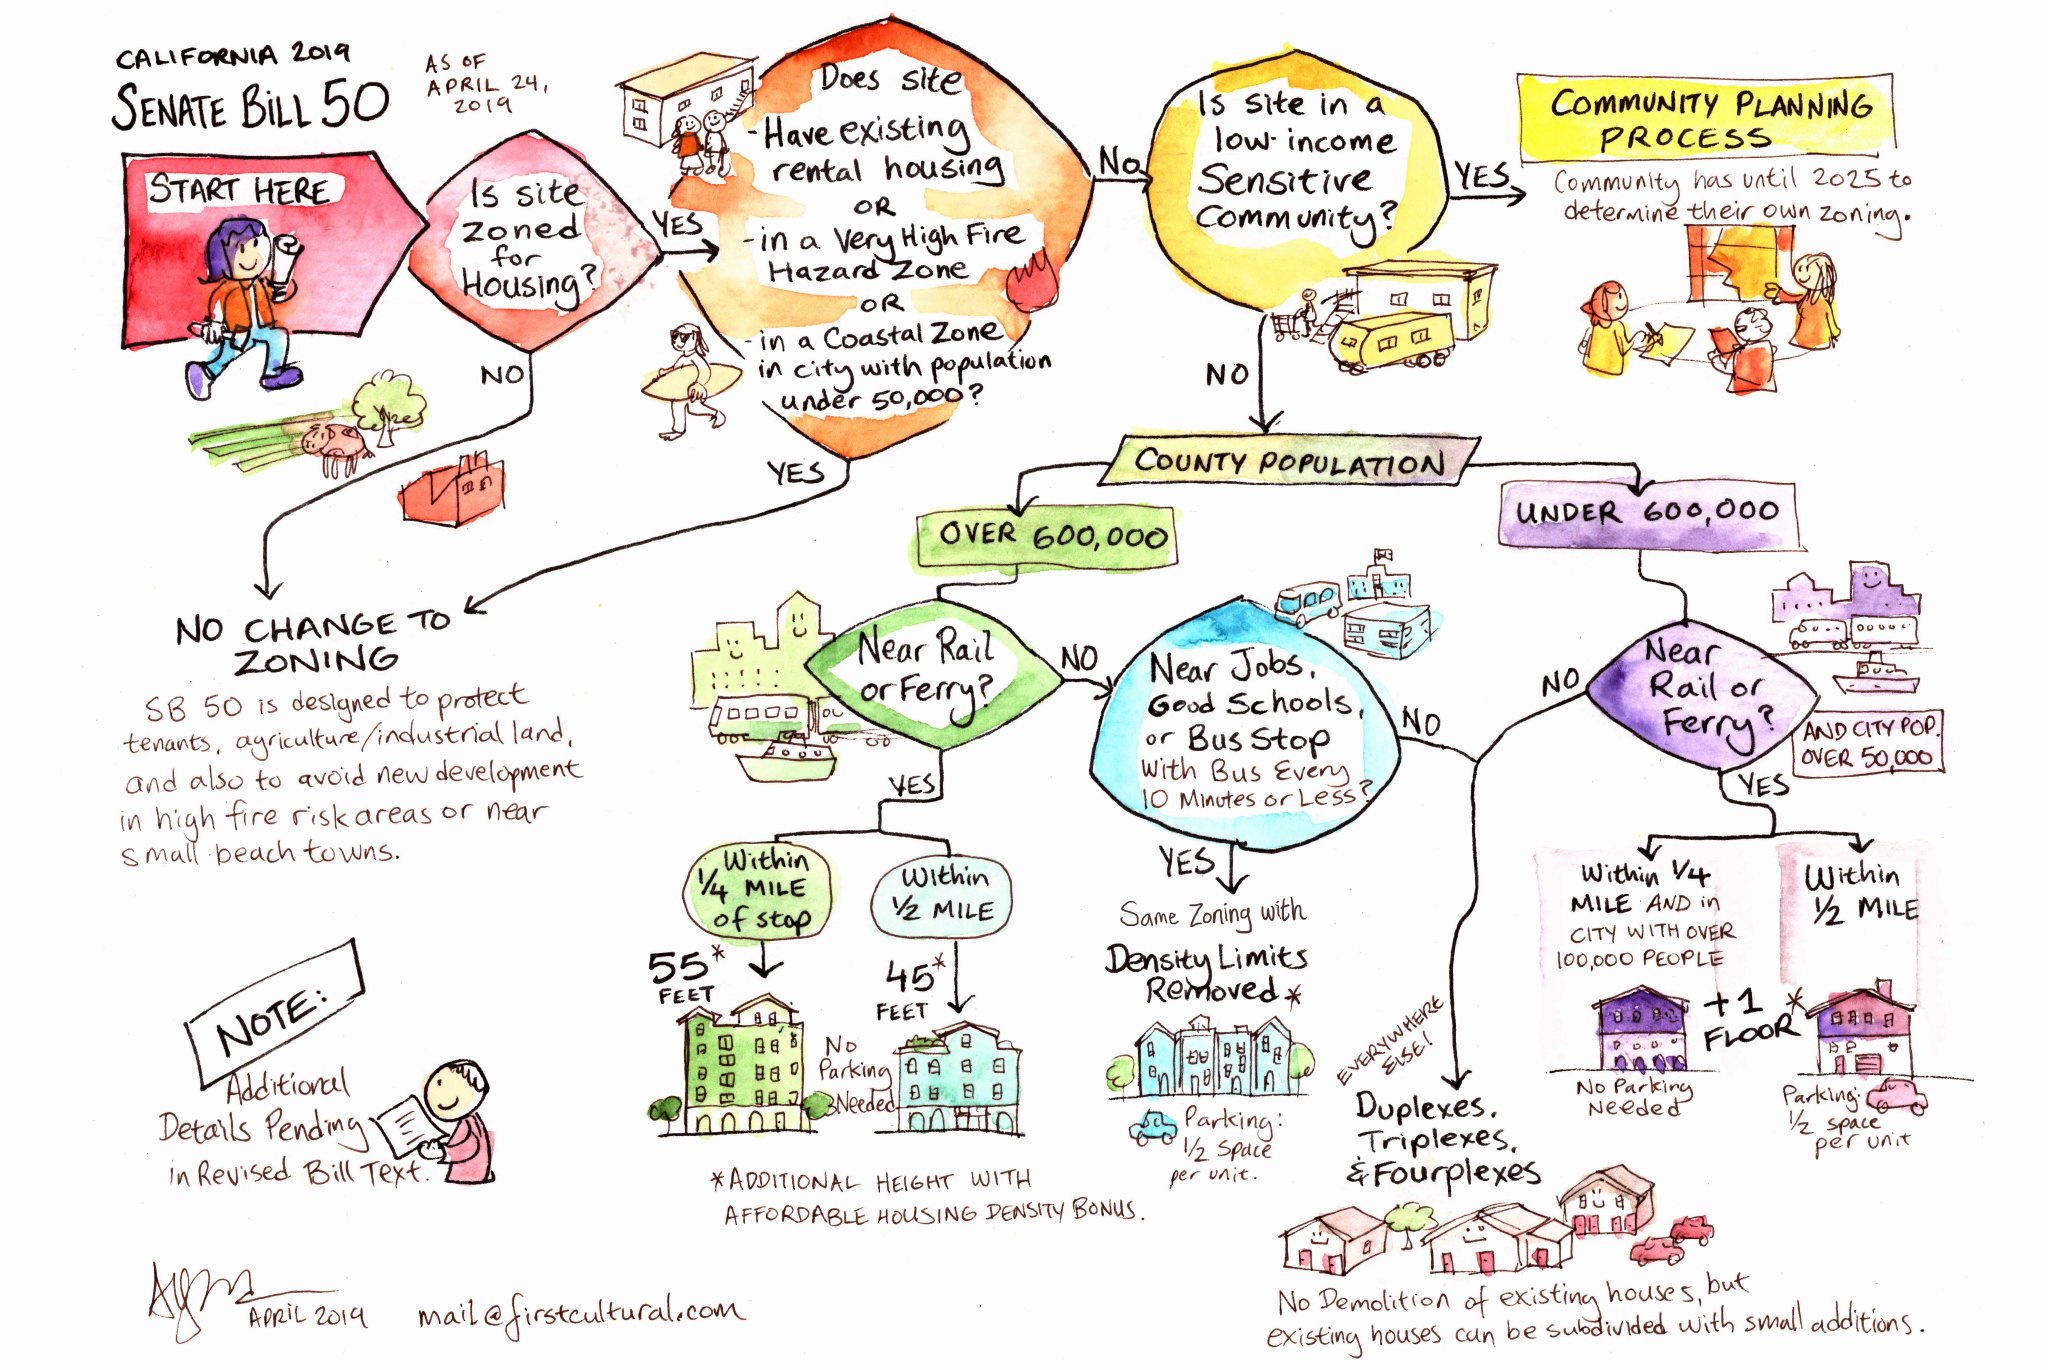 CALIFORNIA 2019
SENATE BILL 50
AS OF
APRIL 24,
2019
START HERE
Is site
zoned
for
Housing?
YES
NO
Does site
-Have existing
rental housing
OR
-in a Very High Fire
Hazard Zone
OR
-in a Coastal Zone
in city with population
under 50,000?
No
YES
Is site in a
low-income
Sensitive
Community?
YES
NO
COMMUNITY PLANNING
PROCESS
Community has until 2025 to
determine their own zoning.
NO CHANGE TO
ZONING
SB 50 is designed to protect
tenants, agriculture/industrial land,
and also to avoid new development
in high fire risk areas or near
small beach towns.
COUNTY POPULATION
OVER 600,000
UNDER 600,000
Near Rail
or Ferry?
NO
YES
Near Jobs,
Good Schools,
or Bus Stop
with Bus Every
10 Minutes or Less?
NO
YES
Near
Rail or
Ferry?
AND CITY POP.
OVER 50,000
NO
YES
Within
1/4 MILE
of stop
Within
1/2 MILE
55*
FEET
45*
FEET
No
Parking
Needed
*ADDITIONAL HEIGHT WITH
AFFORDABLE HOUSING DENSITY BONUS.
Same Zoning with
Density Limits
Removed*
Parking:
1/2 Space
per unit.
EVERYWHERE
ELSE!
Duplexes,
Triplexes,
& Fourplexes
No Demolition of existing houses, but
existing houses can be subdivided with small additions.
Within 1/4
MILE AND in
CITY WITH OVER
100,000 PEOPLE
Within
1/2 MILE
+1
FLOOR*
No Parking
Needed
Parking:
1/2 space
per unit
NOTE:
Additional
Details Pending
in Revised Bill Text.
APRIL 2019
mail@firstcultural.com